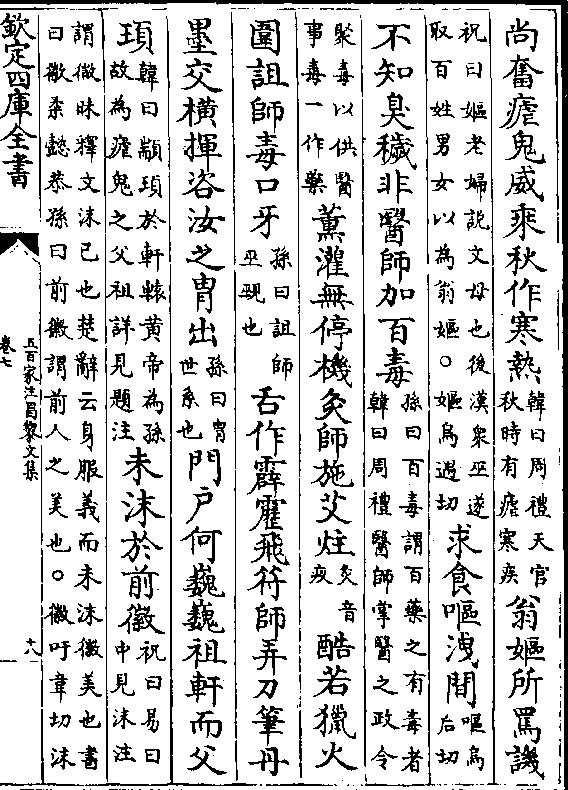 尚奮瘧鬼威乘秋作寒熱韓曰周禮天官秋時有瘧寒疾翁嫗所罵譏
祝曰嫗老婦說文母也後漢衆巫遂取百姓男女以為翁嫗○嫗烏遇切求食嘔洩間嘔烏后切
不知臭穢非醫師加百毒孫曰百毒謂百藥之有毒者韓曰周禮醫師掌醫之政令
聚毒以供醫事毒一作藥薰灌無停機灸師施艾炷灸音疚酷若獵火
圍詛師毒口牙孫曰詛師巫覡也舌作霹靂飛符師弄刀筆丹
墨交橫揮咨汝之胄出孫曰胄世系也門戶何巍巍祖軒而父
頊韓曰顓頊於軒轅黃帝為孫故為瘧鬼之父祖詳見題注未沬於前徽祝曰易曰中見沬注
謂微昧釋文沬已也楚辭云身服義而未沬徽美也書曰徽柔懿恭孫曰前徽謂前人之美也○徽吁韋切沬
欽定四庫全書
五百家注昌黎文集
卷七
十八